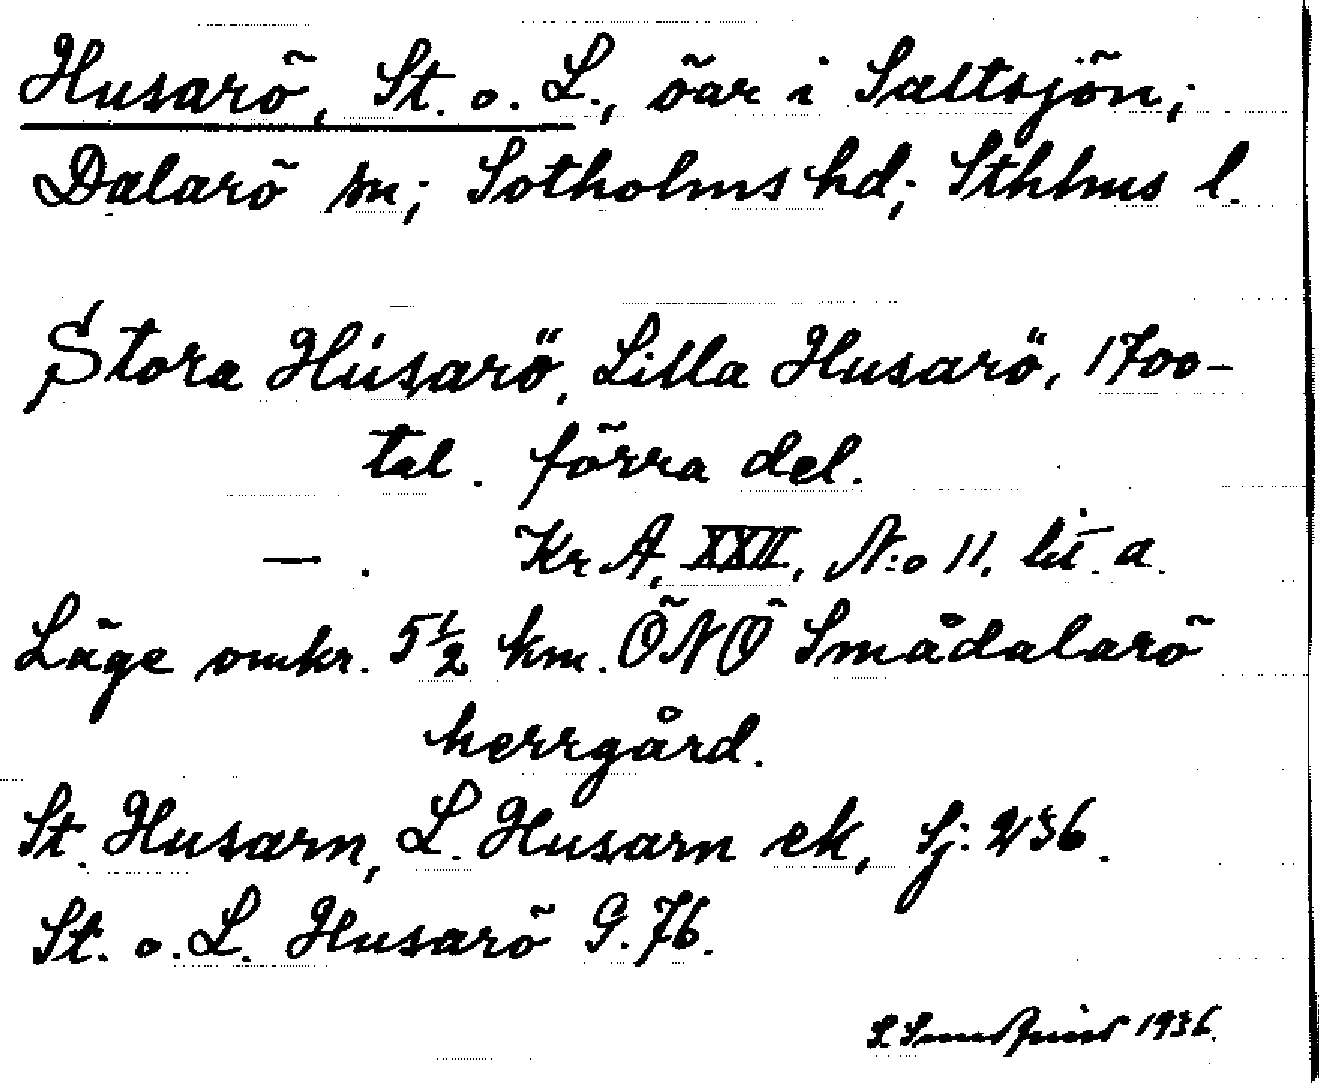 Husarö, St. o. L., öar i Saltsjön;
Dalarö sn; Sotholms hd; Sthlms l.
Stora Húsarö, Lilla Husarö, 1700-
tal. förra del.
— . Kr A, XXII, N:o 11. lit. a.
Läge omkr. 5 1/2 km. ÖNÖ Smådalarö
herrgård.
St. Husarn, L. Husarn ek, Sj: 236.
St. o. L. Husarö G. 76.
1936.